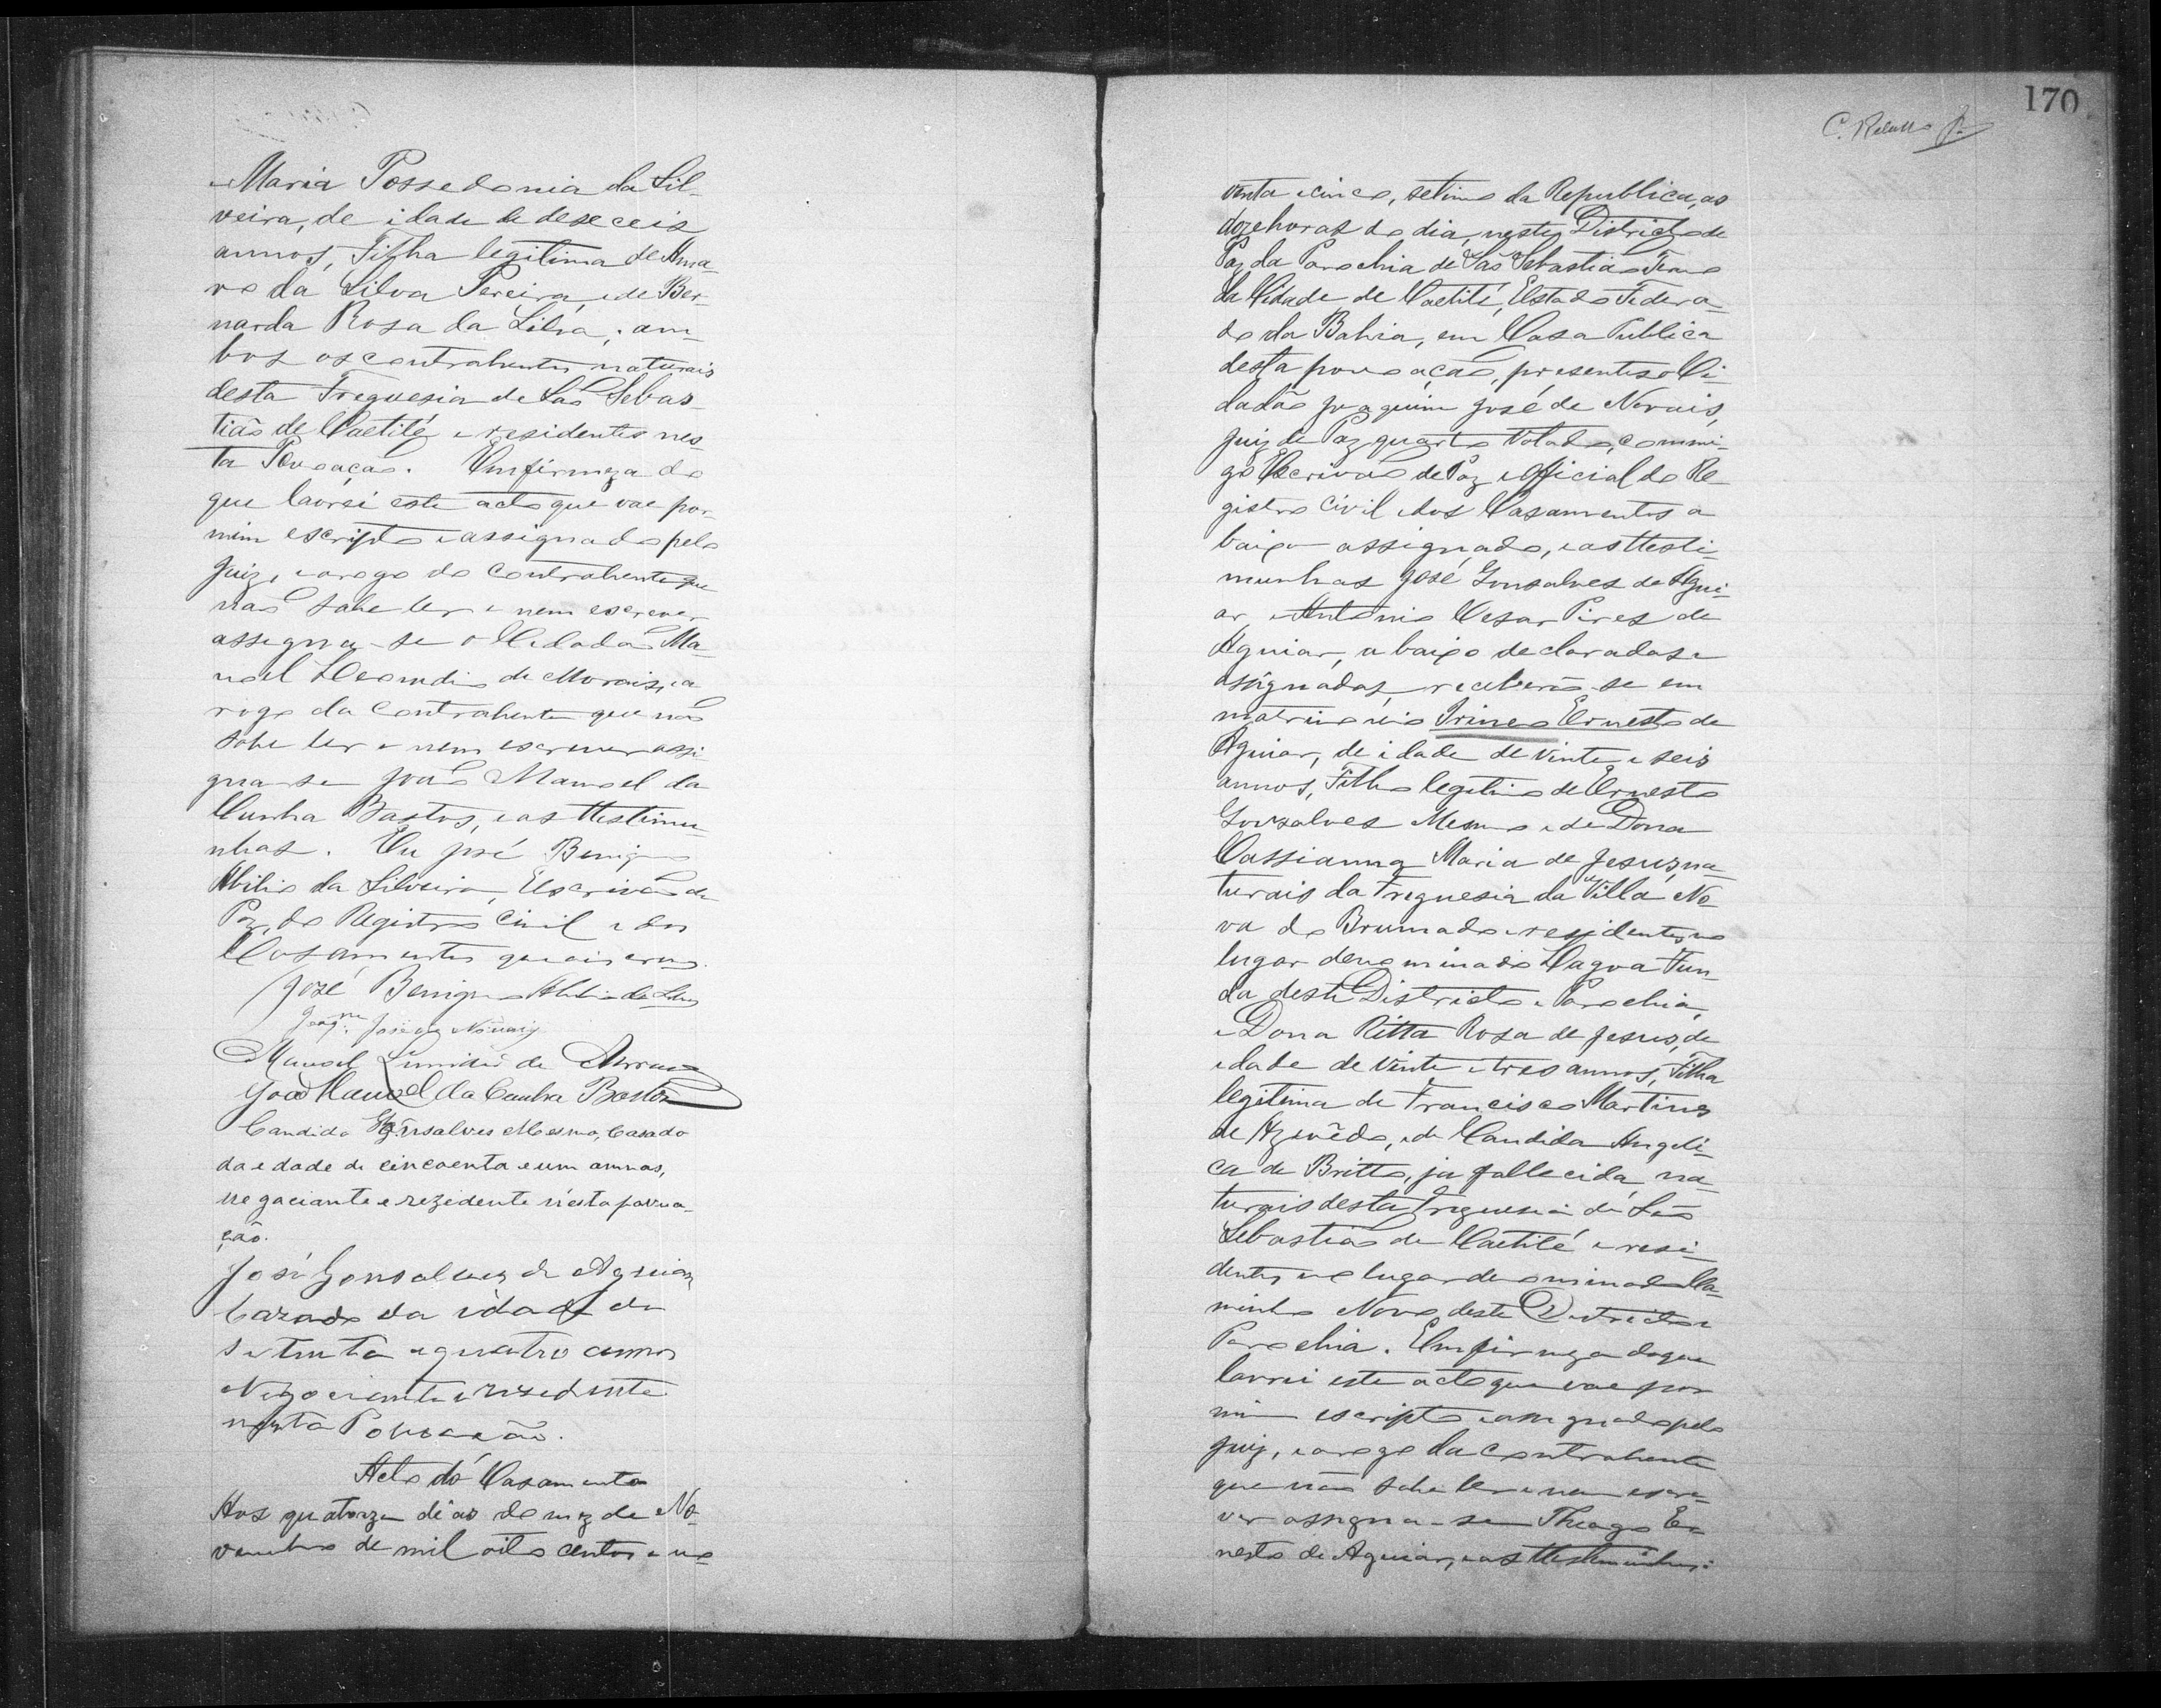 Maria Possedonia da Sil-
veira, de idade de deseceis
annos, Filha legitima de Ama-
ro da Silva Pereira, e de Ber-
narda Rosa da Silva, am-
bos os contrahentes naturais
desta Freguesia de São Sebas-
tião de Caetité e residentes nes-
ta Povoação. Em firmeza do
que lavrei este acto que vae por
mim escripto e assignado pelo
Juiz, e arogo do Contrahente que
não sabe ler e nem escrever
assigna-se o Cidadão Ma-
noel de Morais, e a
rogo da Contrahente que não
sabe ler e nem escrever assi-
gna-se João Manoel da
Cunha Bastos, e as ttestimu-
nhas. Eu José Benigno
Abilio da Silveira, Escrivão de
Paz, do Registro Civil e dos
Casamentos que escrevi.
José Benigno Abilio da
Joaqm. José de Novais
Manoel de
João Manoel da Cunha Bastos
Candido Gonsalves Mesmo, Casado
da edade de cincoenta e um annos,
negaciante e rezidente n'esta povua-
ção.
José Gonsalves de Aguiar
Cazado da idade de
setenta e quatro annos
Negociante e rezidente
nesta Povoação.
Acto do Casamento
Aos quatorze dias do mez de No-
vembro de mil oito centos e no-
170
C. Rebello Jr.
venta e cinco, setimo da Republica, as
doze horas do dia, neste Districto de
Paz da Parochia de São Sebastião Termo
da Cidade de Caetité, Estado Federa-
do da Bahia, em Casa Publica
desta povoação, presentes o Ci-
dadão Joaquim José de Novais,
Juiz de Paz quarto Votado, commi-
go Escrivão de Paz e Official do Re-
gistro Civil e dos Casamentos a
baixo assignado, e as ttesti-
munhas José Gonsalves de Agui-
ar, e Antonio Cesar Pires de
Aguiar, a baixo declaradas e
assignadas, receberão-se em
matrimonio Irineo Ernesto de
Aguiar, de idade de vinte e seis
annos, Filho legitimo de Ernesto
Gonsalves Mesmo e de Dona
Cassianna Maria de Jesus, na-
turais da Freguesia da Villa No-
va do Brumado e residentes no
lugar denominado Lagoa Fun-
da deste Districto e Parochia,
e Dona Ritta Rosa de Jesus, de
idade de vinte e tres annos, Filha
legitima de Francisco Martins
de Azevêdo, e de Candida Angeli-
ca de Britto, ja fallecida, na-
turais desta Freguesia de São
Sebastião de Caetité e resi-
dentes no lugar denominado Ca-
minho Novo deste Districto e
Parochia. Em firmeza do que
lavrei este acto que vae por
mim escripto e assignado pelo
Juiz, e arogo da Contrahente
que não sabe ler e nem escre-
ver assigna-se Thiago Er-
nesto de Aguiar, e as ttestimunhas: